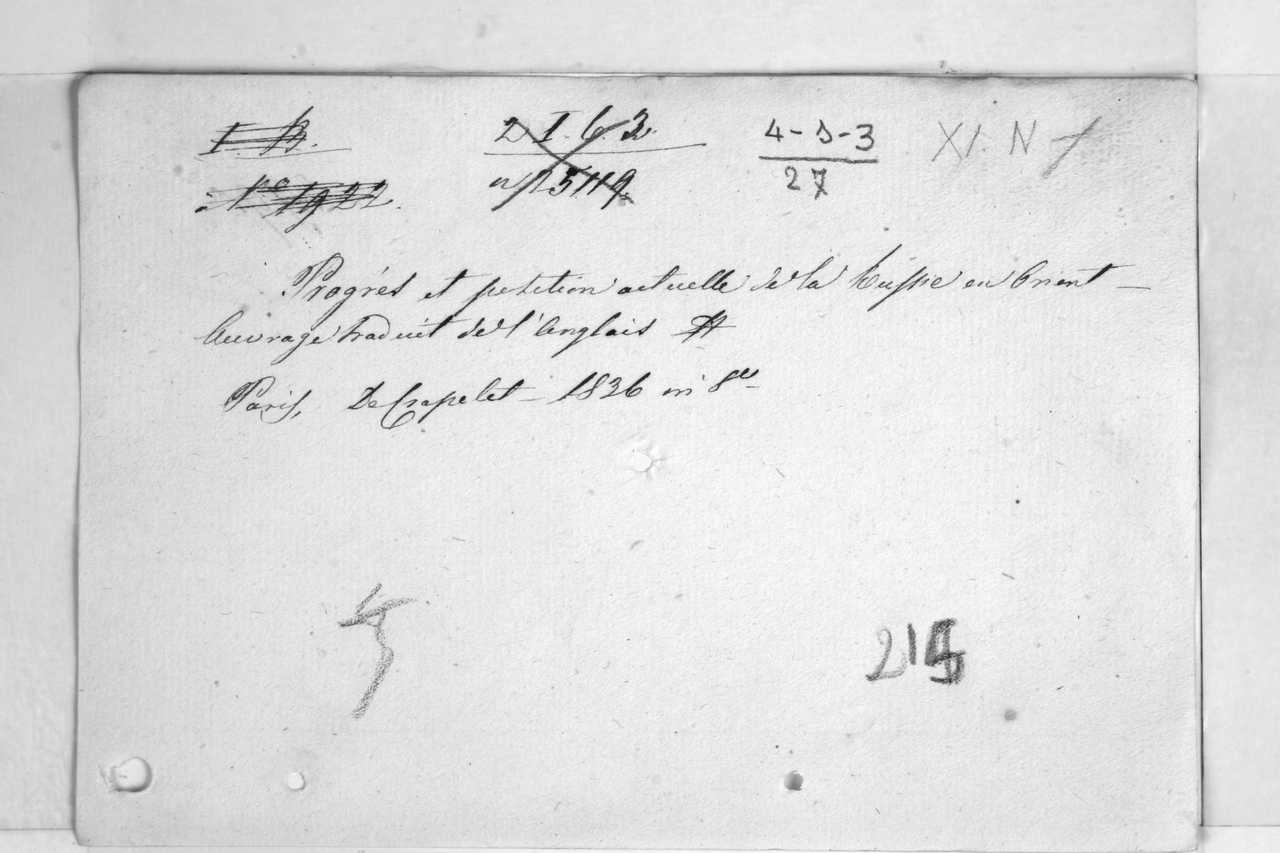 I. B. 2 I. 6. 3. 4-D-3 XI. N
No 1922. no 15119 27
Progrès et position actuelle de la Russie en Orient —
Ouvrage traduit de l'Anglais
Paris, De Crapelet — 1836 in 8º
215